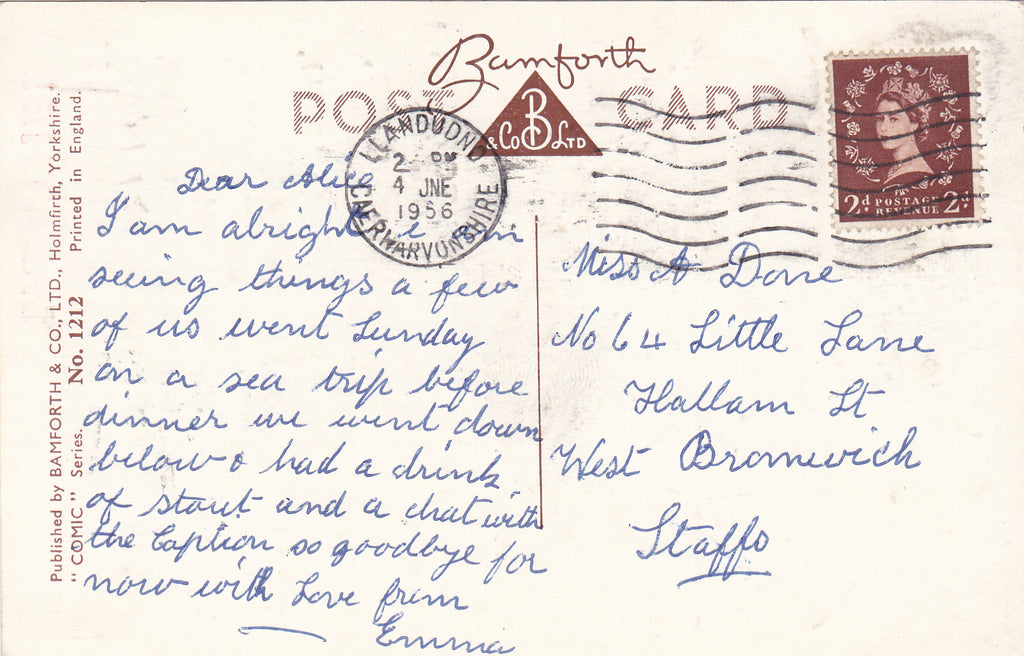 Bamforth
POST CARD
B
& Co LTD
LLANDUDNO
2 - PM
4 JNE
1956
CAERNARVONSHIRE
2d POSTAGE 2d
REVENUE
Published by BAMFORTH & CO., LTD., Holmfirth, Yorkshire.
"COMIC" Series. No. 1212 Printed in England.
Dear Alice
I am alright & am
seeing things a few
of us went Sunday
on a sea trip before
dinner we went down
below & had a drink
of stout and a chat with
the Caption so goodbye for
now with Love from
Emma
Miss A Done
No 64 Little Lane
Hallam St
West Bromwich
Staffs